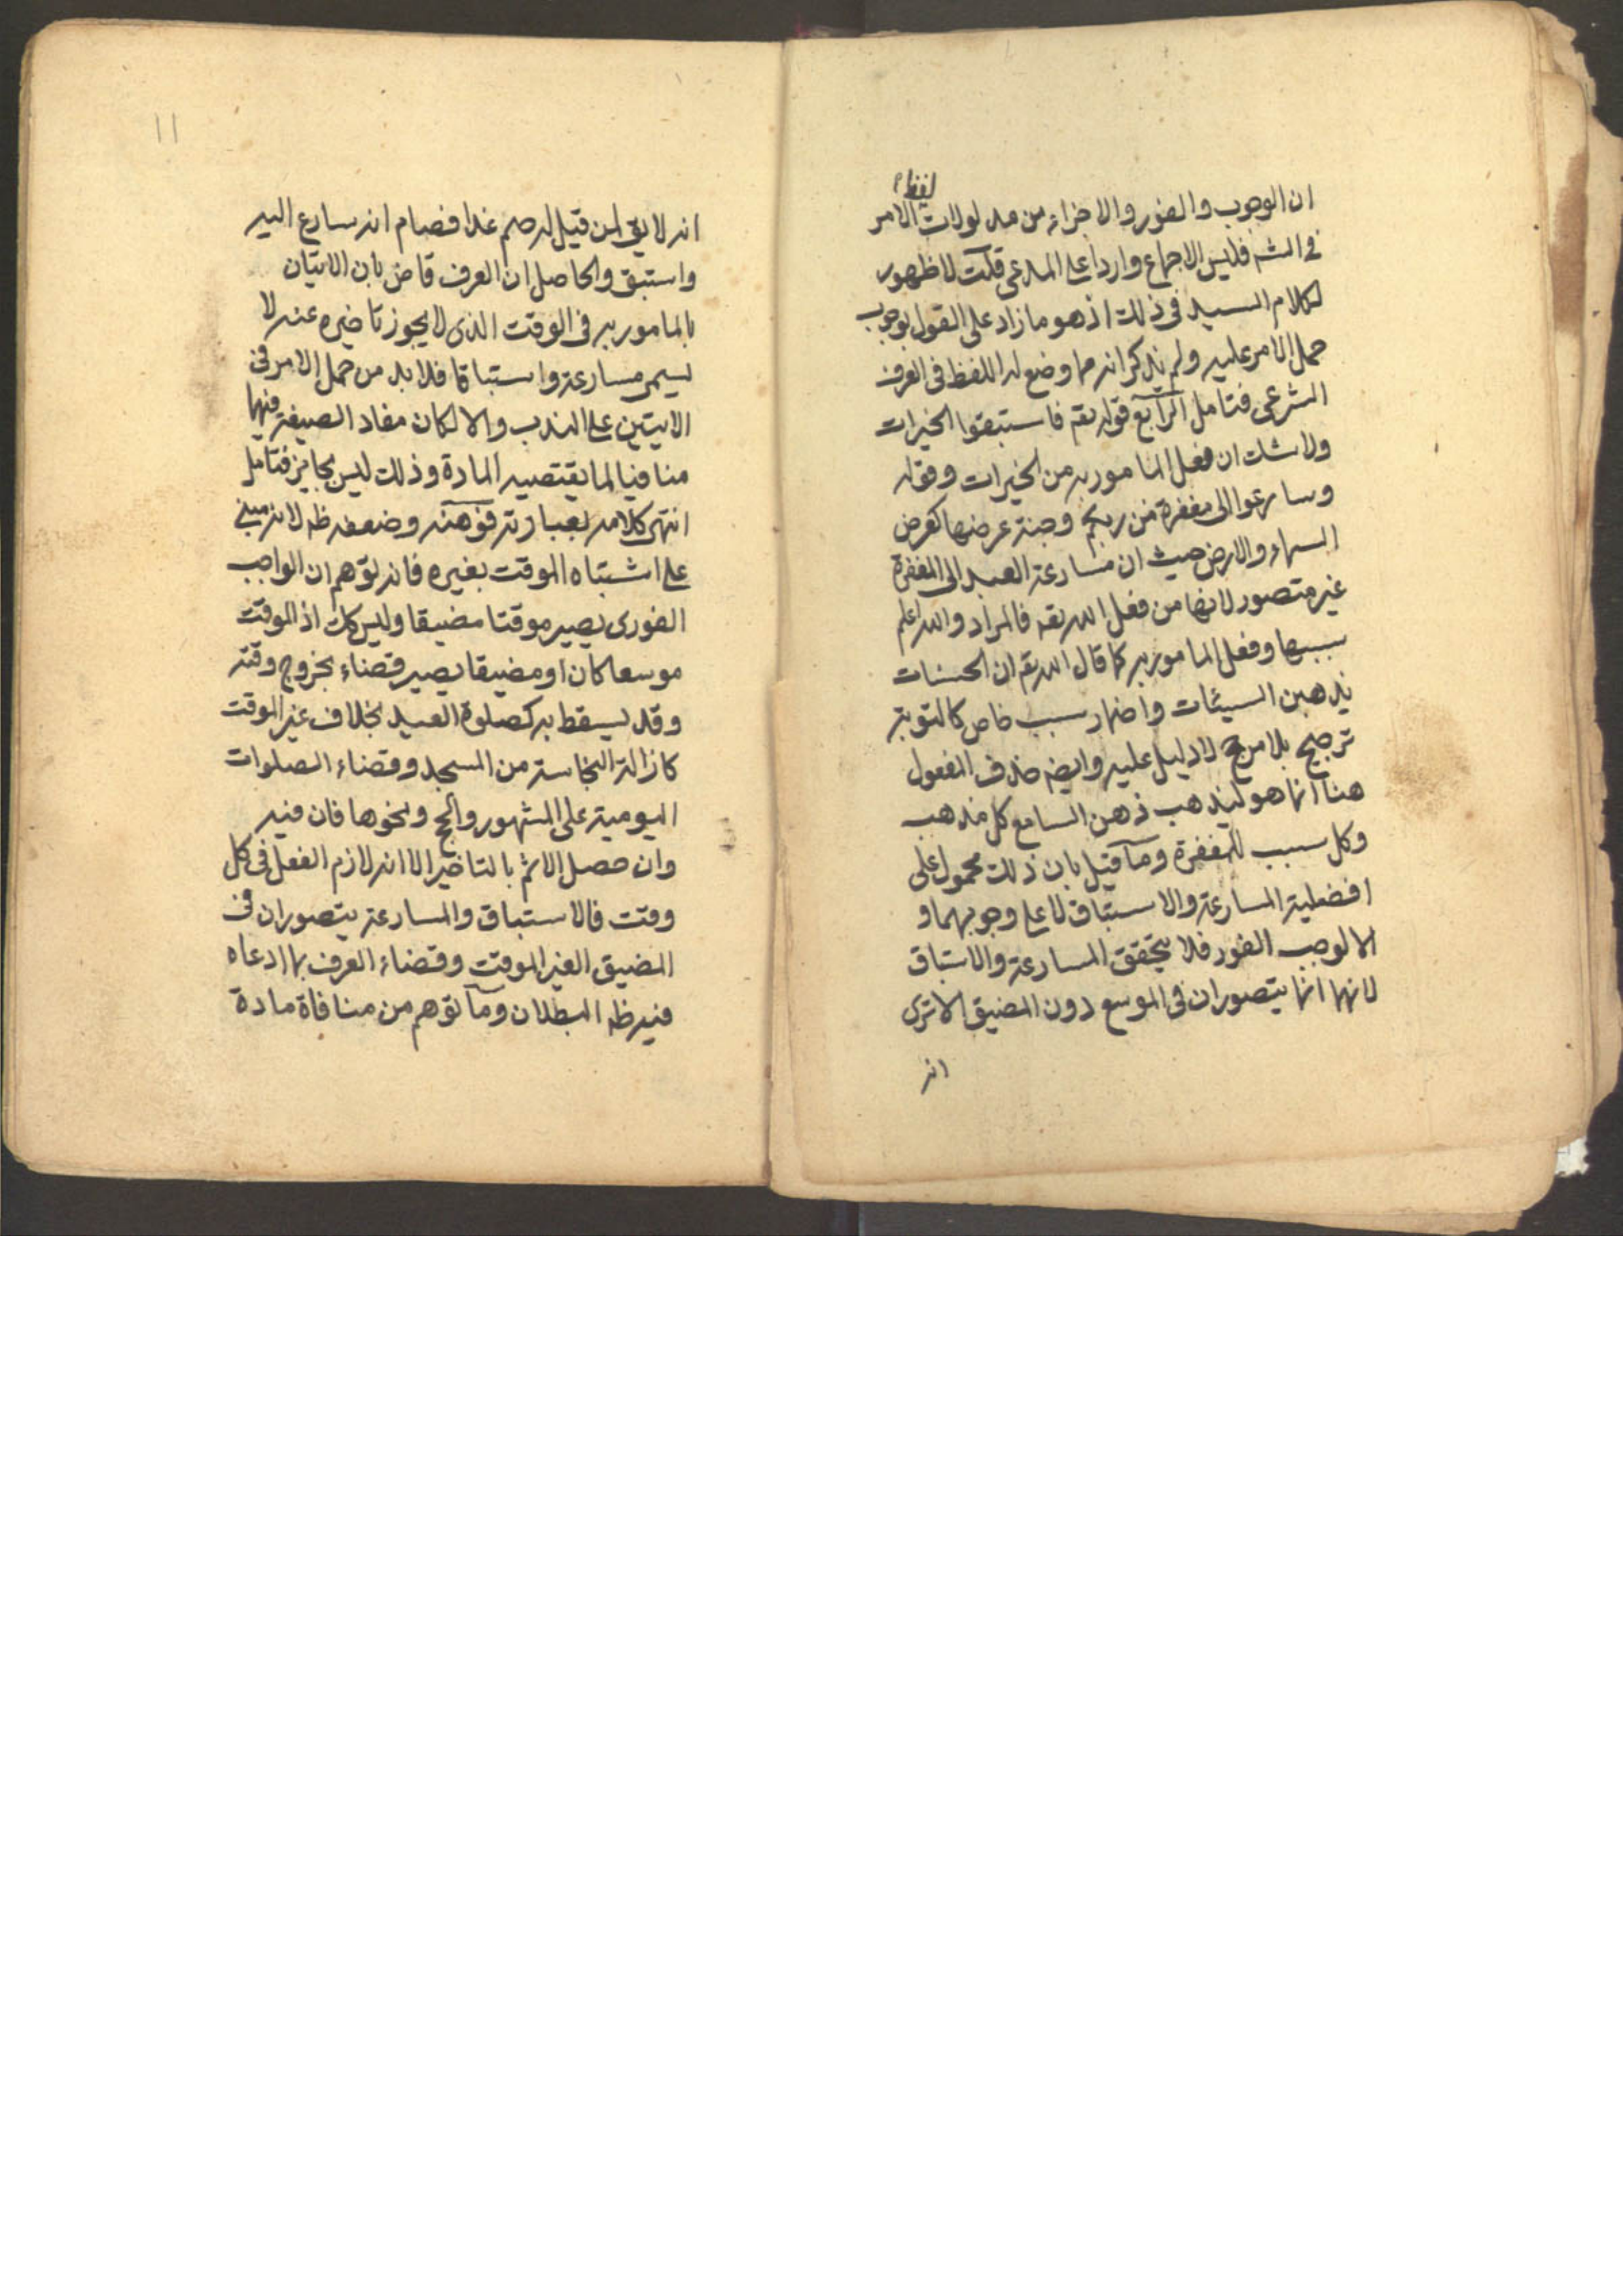 ان الوجوب والفور والاجزاء من مدلولات لفظ الامر
في الشرع فليس الاجماع واردا على المدعى قلت لا ظهور
لكلام السيد في ذلك اذ هو ما زاد على القول بوجوب
حمل الامر عليه ولم يذكر انه مما وضع له اللفظ في العرف
الشرعي فتامل الرابع قوله تعم فاستبقوا الخيرات
ولا شك ان فعل المامور به من الخيرات وقوله
وسارعوا الى مغفرة من ربكم وجنة عرضها كعرض
السماء والارض حيث ان مسارعة العبد الى المغفرة
غير متصور لانها من فعل الله تعه فالمراد والله اعلم
سببها وفعل المامور به كما قال الله تعم ان الحسنات
يذهبن السيئات واضمار سبب خاص كالتوبة
ترجيح بلا مرجح لا دليل عليه وايضه حذف المفعول
هنا انما هو ليذهب ذهن السامع كل مذهب
وكل سبب للمغفرة وما قيل بان ذلك محمول على
افضلية المسارعة والاستباق لا على وجوبهما و
الا لوجب الفور فلا يتحقق المسارعة والاستباق
لانهما انما يتصوران في الموسع دون المضيق الا ترى
انه
١١
انه لا يق لمن قيل له صم غدا فصام انه سارع اليه
واستبق والحاصل ان العرف قاض بان الاتيان
بالمامور به في الوقت الذي لا يجوز تاخيره عنه لا
يسمى مسارعة واستباقا فلا بد من حمل الامر في
الايتين على الندب والا لكان مفاد الصيغة فيهما
منافيا لما يقتضيه المادة وذلك ليس بجايز فتامل
انتهى كلامه بعبارته فوهنه وضعفه ظه لانه مبني
على اشتباه الموقت بغيره فانه توهم ان الواجب
الفوري يصير موقتا مضيقا وليس كك اذ الموقت
موسعا كان او مضيقا يصير قضاء بخروج وقته
وقد يسقط به كصلوة العيد بخلاف غير الموقت
كازالة النجاسة من المسجد وقضاء الصلوات
اليومية على المشهور والحج ونحوها فان فيه
وان حصل الاثم بالتاخير الا انه لازم الفعل في كل
وقت فالاستباق والمسارعة يتصوران في
المضيق الغير الموقت وقضاء العرف بما ادعاه
فيه ظه البطلان وما توهم من منافاة مادة